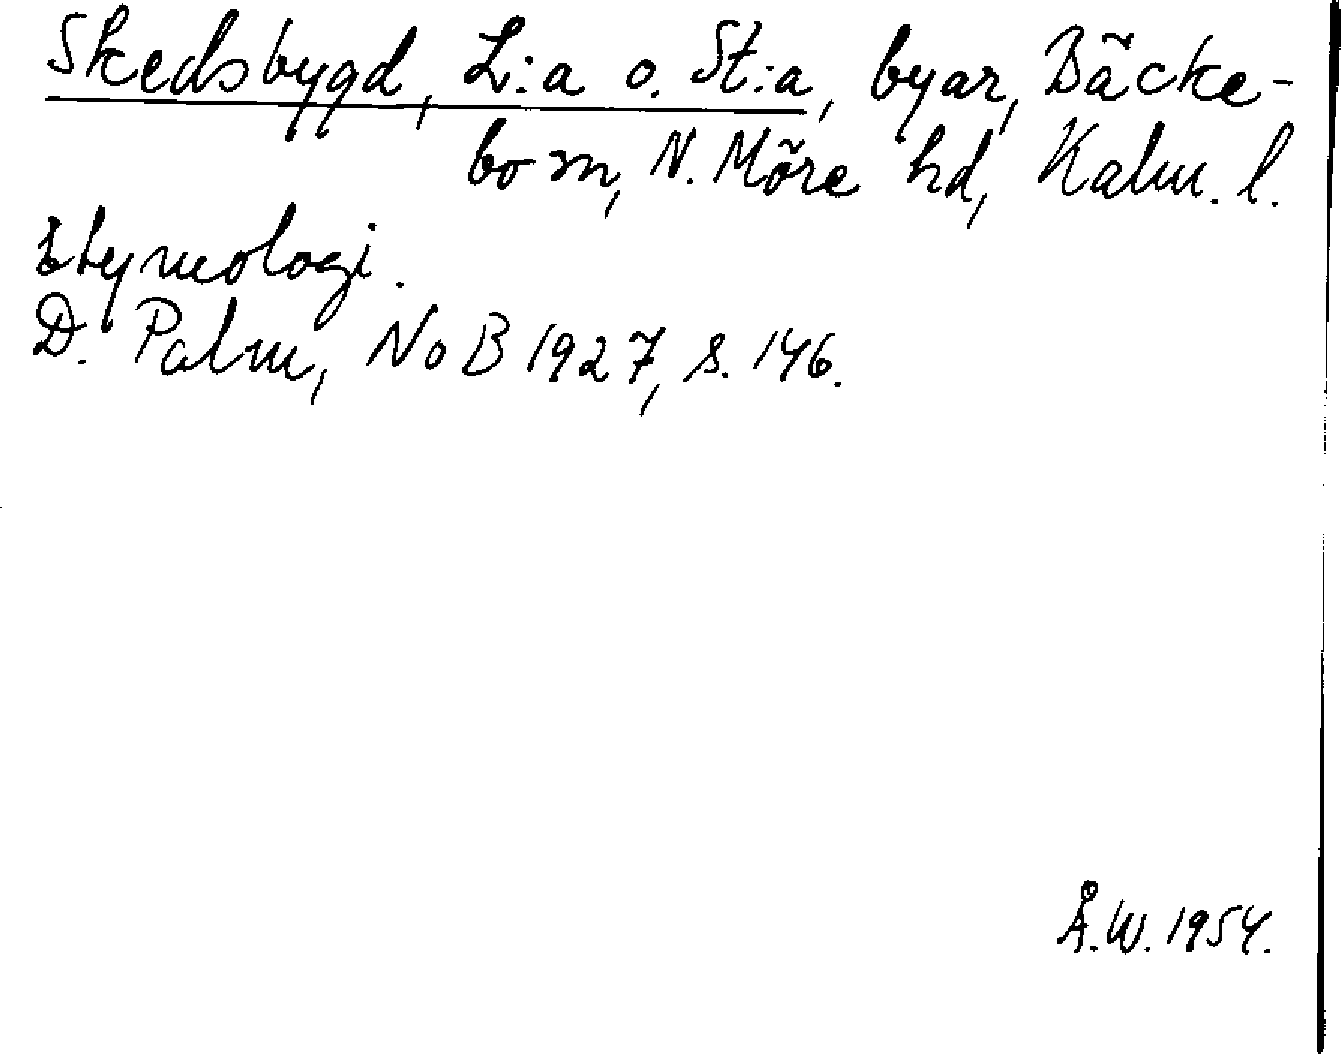 Skedsbygd, L:a o. St:a, byar, Bäcke-
bo sn, N. Möre hd, Kalm. l.
Etymologi.
D. Palm, NoB 1927, s. 146.
Å.W. 1954.